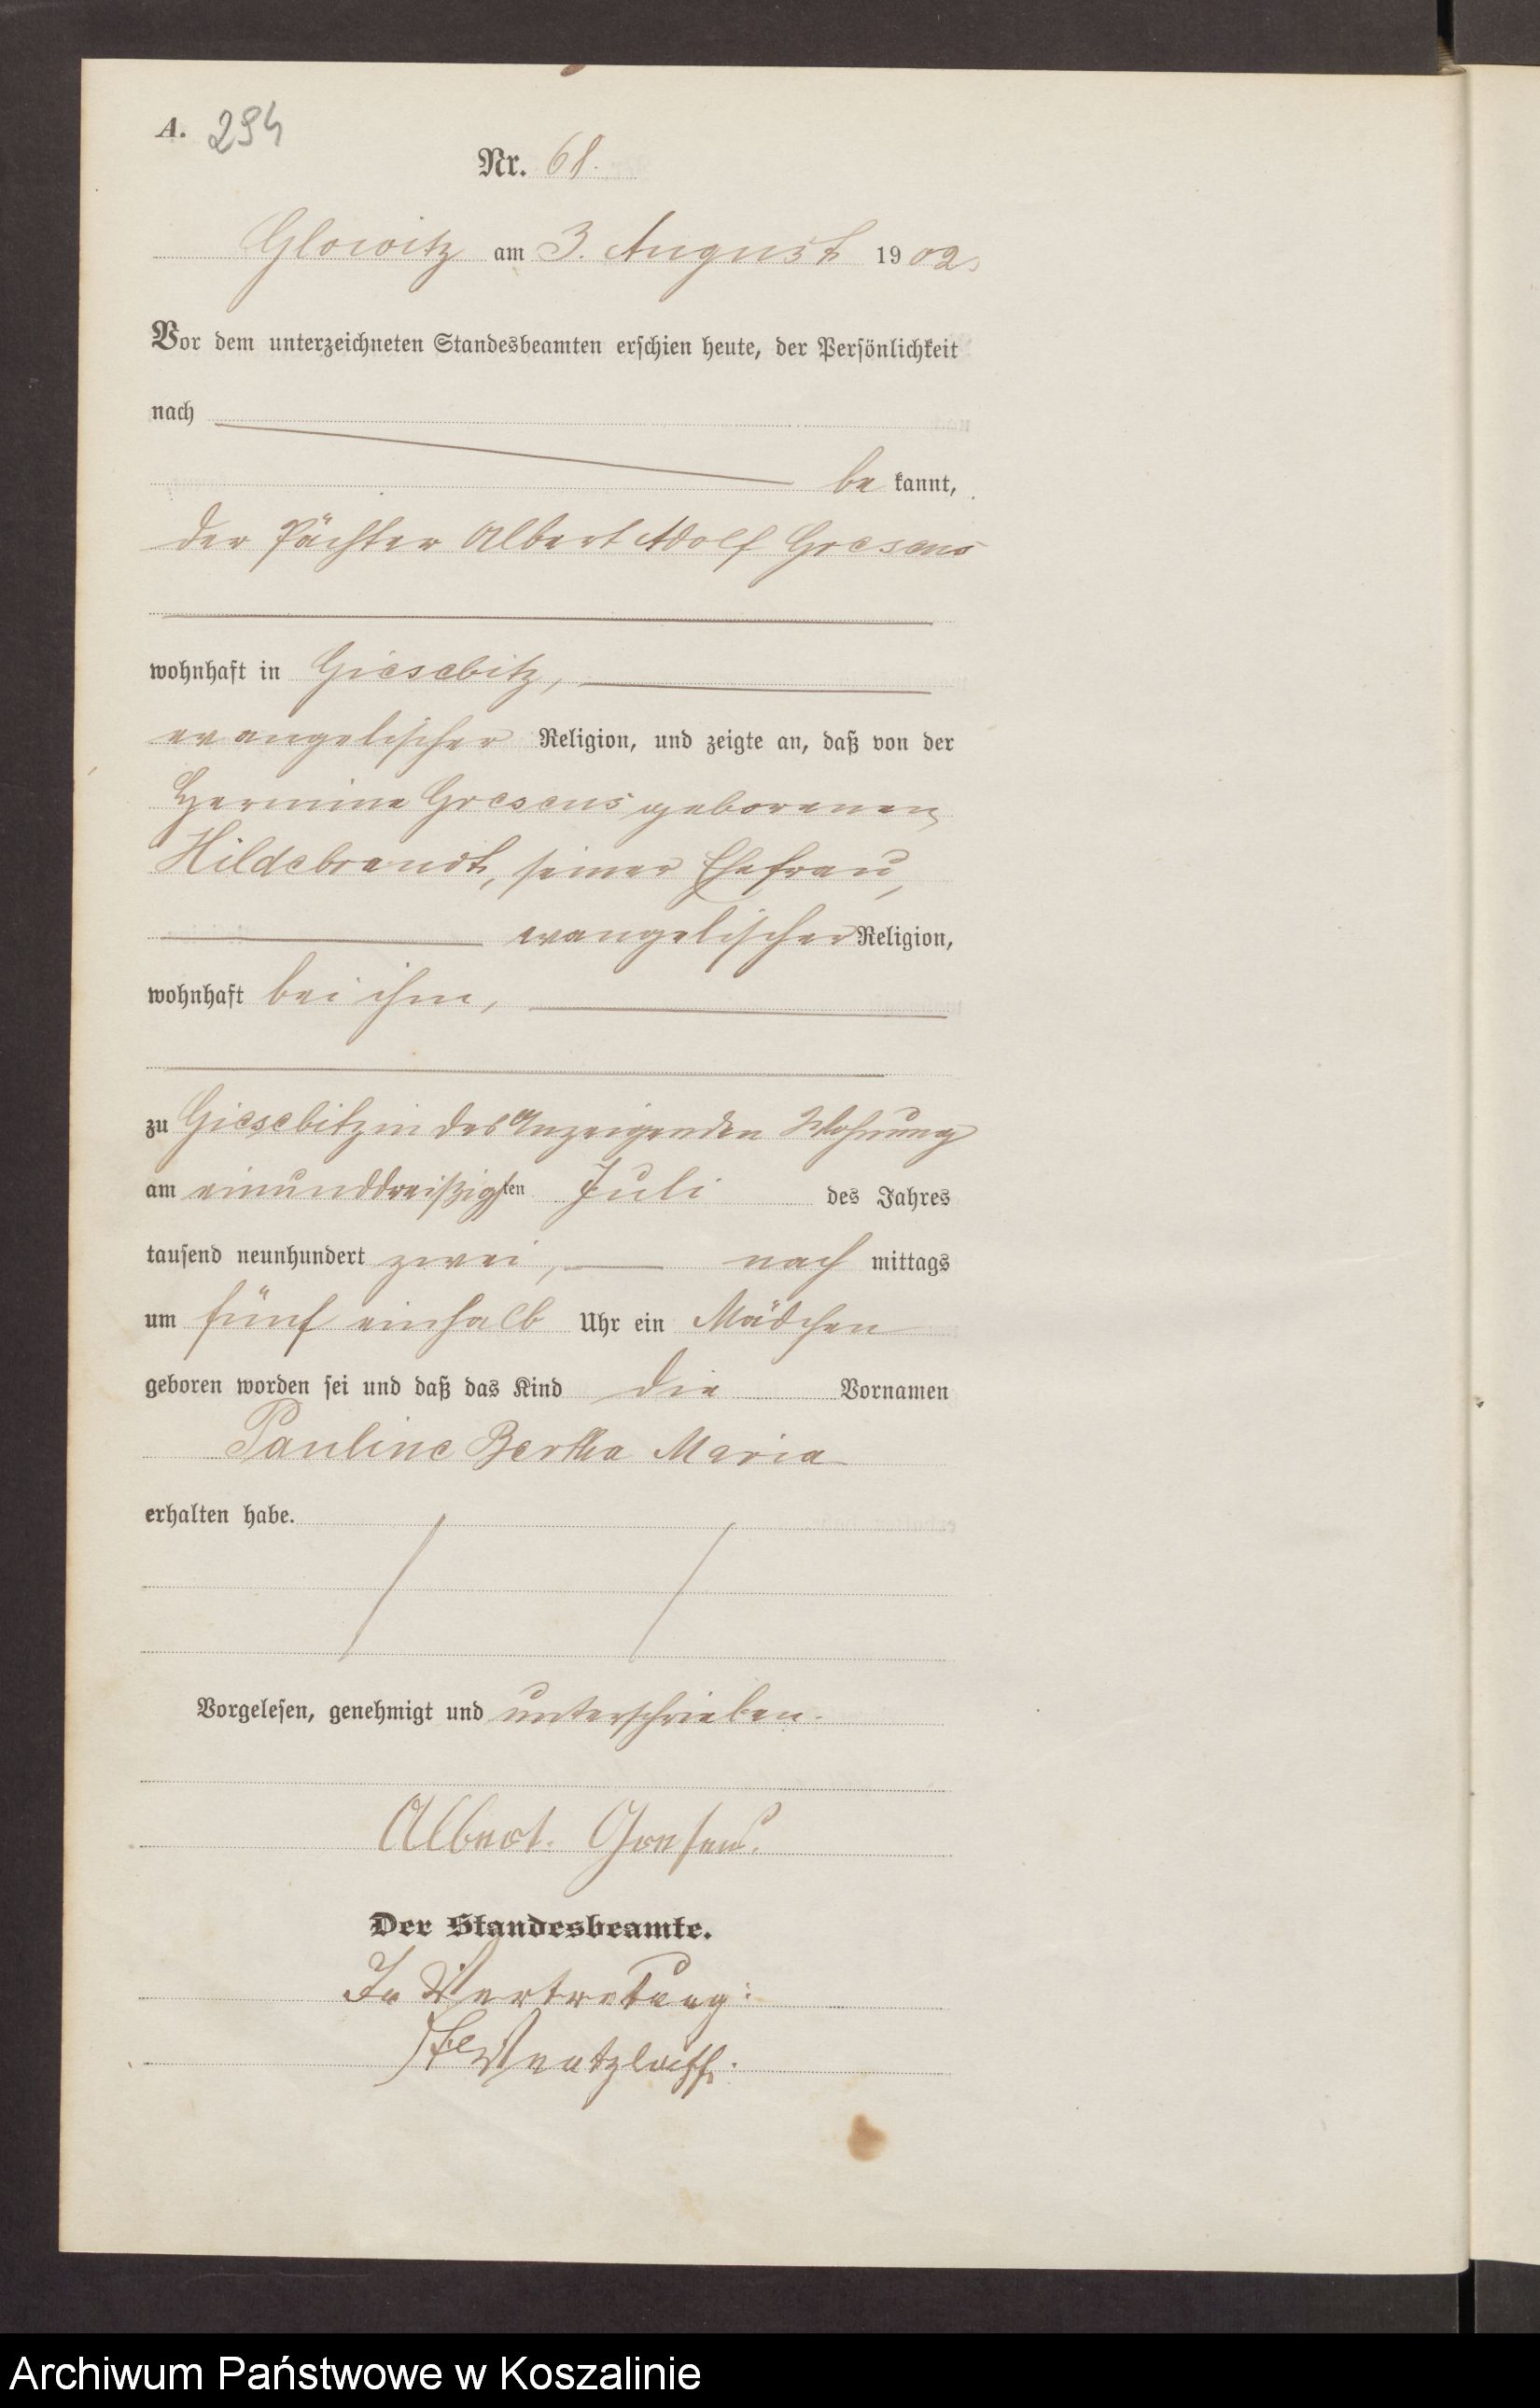 A. 294
Nr. 68.
Glowitz am 3. August 1902.
Vor dem unterzeichneten Standesbeamten erschien heute, der Persönlichkeit
nach
be kannt,
der Pächter Albert Adolf Gresens
wohnhaft in Giesebitz,
evangelischer Religion, und zeigte an, daß von der
Hermine Gresens geborenen
Hildebrandt, seiner Ehefrau,
evangelischer Religion,
wohnhaft bei ihm,
zu Giesebitz in des Anzeigenden Wohnung
am einunddreißigsten Juli des Jahres
tausend neunhundert zwei, nach mittags
um fünf einhalb Uhr ein Mädchen
geboren worden sei und daß das Kind die Vornamen
Pauline Bertha Maria
erhalten habe.
Vorgelesen, genehmigt und unterschrieben.
Albert Gresens.
Der Standesbeamte.
In Vertretung:
Archiwum Państwowe w Koszalinie